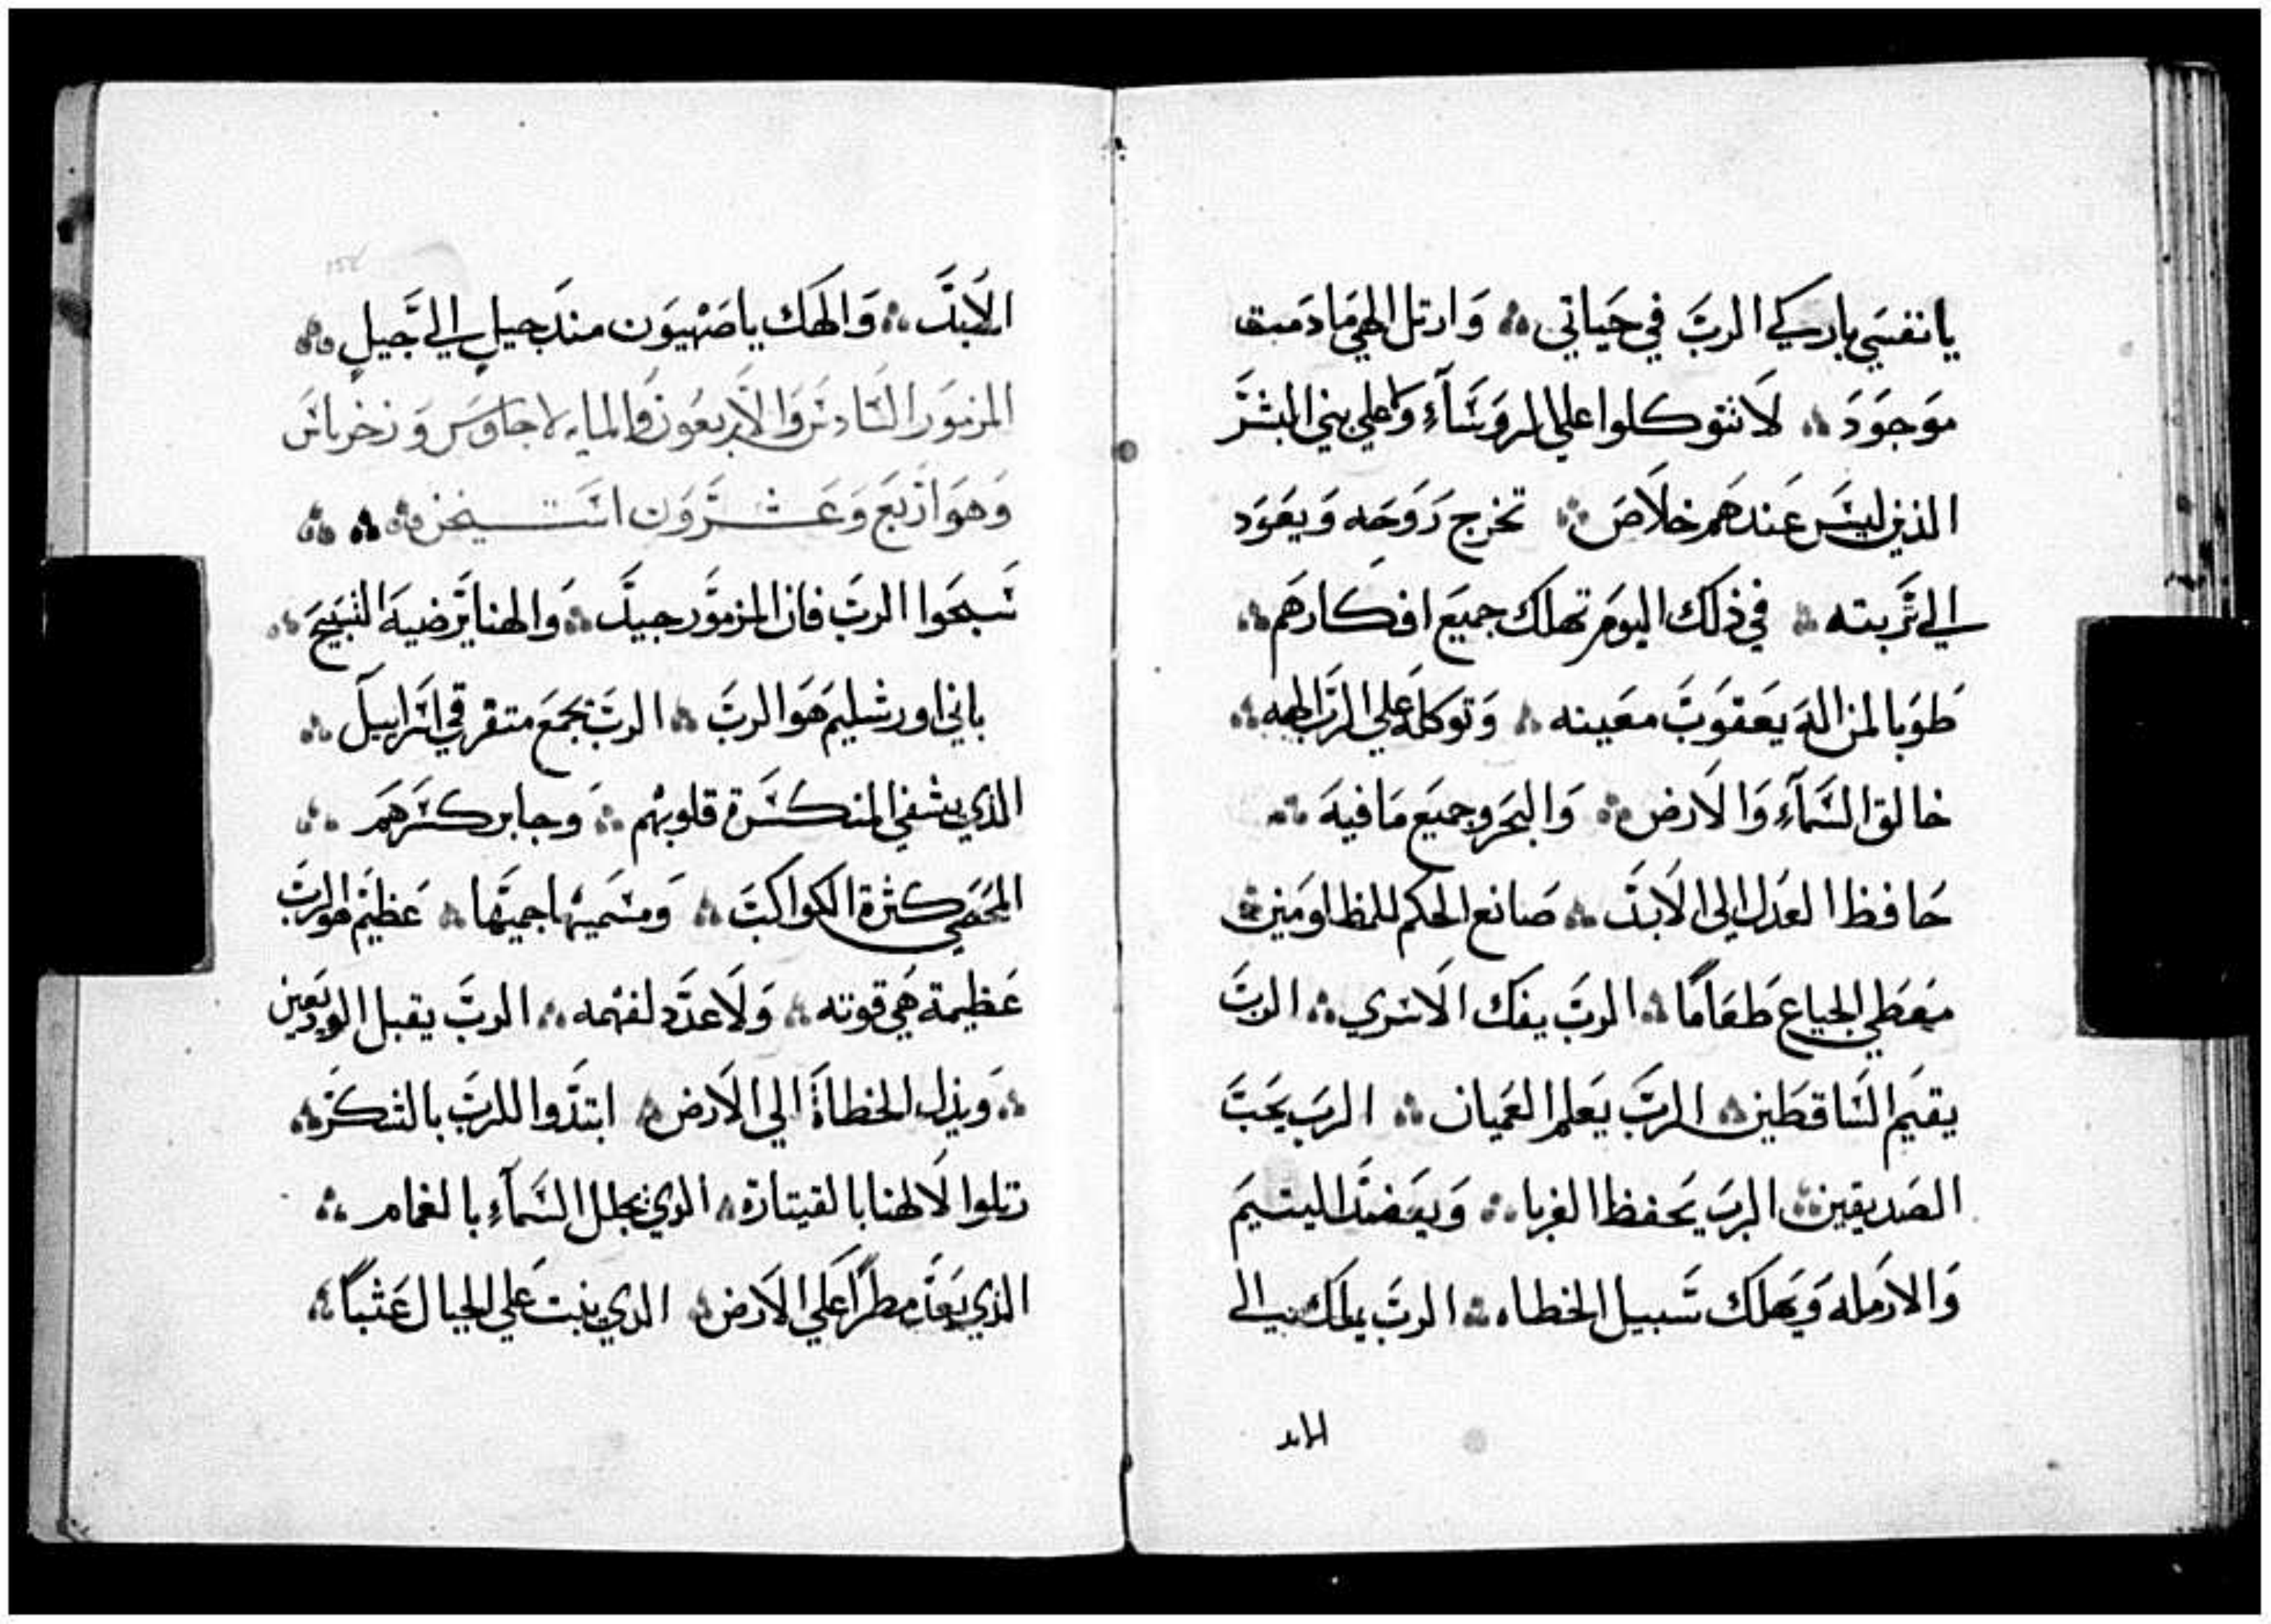 يا نفسي باركي الرب في حياتي ⁘ وارتل الهي ما دمت
موجود ⁘ لا تتوكلوا علي الروساء ولا علي بني البشر
الذين ليس عندهم خلاص ⁘ تخرج روحه ويعود
الي تربته ⁘ في ذلك اليوم تهلك جميع افكارهم ⁘
طوبا لمن اله يعقوب معينه ⁘ وتوكله علي الرب الهه ⁘
خالق السمآء والارض ⁘ والبحر وجميع ما فيه ⁘
حافظ العدل الي الابد ⁘ صانع الحكم للمظلومين ⁘
معطي الجياع طعامًا ⁘ الرب يفك الاسري ⁘ الرب
يقيم الساقطين ⁘ الرب يعلم العميان ⁘ الرب يحب
الصديقين ⁘ الرب يحفظ الغربا ⁘ ويعضد اليتيم
والارمله ويهلك سبيل الخطاه ⁘ الرب يملك الي
الابد
الابد ⁘ والهك يا صهيون منذ جيل الي جيل ⁘
المزمور السادس والاربعون والمايه لاجاوس وزخرياس
وهو اربع وعشرون استيخن ⁘ ⁘ ⁘
سبحوا الرب فان المزمور جيد ⁘ والهنا يرضيه التسبيح ⁘
باني اورشليم هو الرب ⁘ الرب يجمع متفرقي اسراييل ⁘
الذي يشفي المنكسرة قلوبهم ⁘ وجابر كسرهم ⁘
المحصي كثرة الكواكب ⁘ ومسميها جميعها ⁘ عظيم هو الرب
عظيمة هي قوته ⁘ ولا عدد لفهمه ⁘ الرب يقبل الوديعين
⁘ ويذل الخطاة الي الارض ⁘ ابتدوا للرب بالشكر ⁘
رتلوا لالهنا بالقيتارة ⁘ الذي يجلل السمآء بالغمام ⁘
الذي يعد مطرًا علي الارض ⁘ الذي ينبت علي الجبال عشبًا ⁘